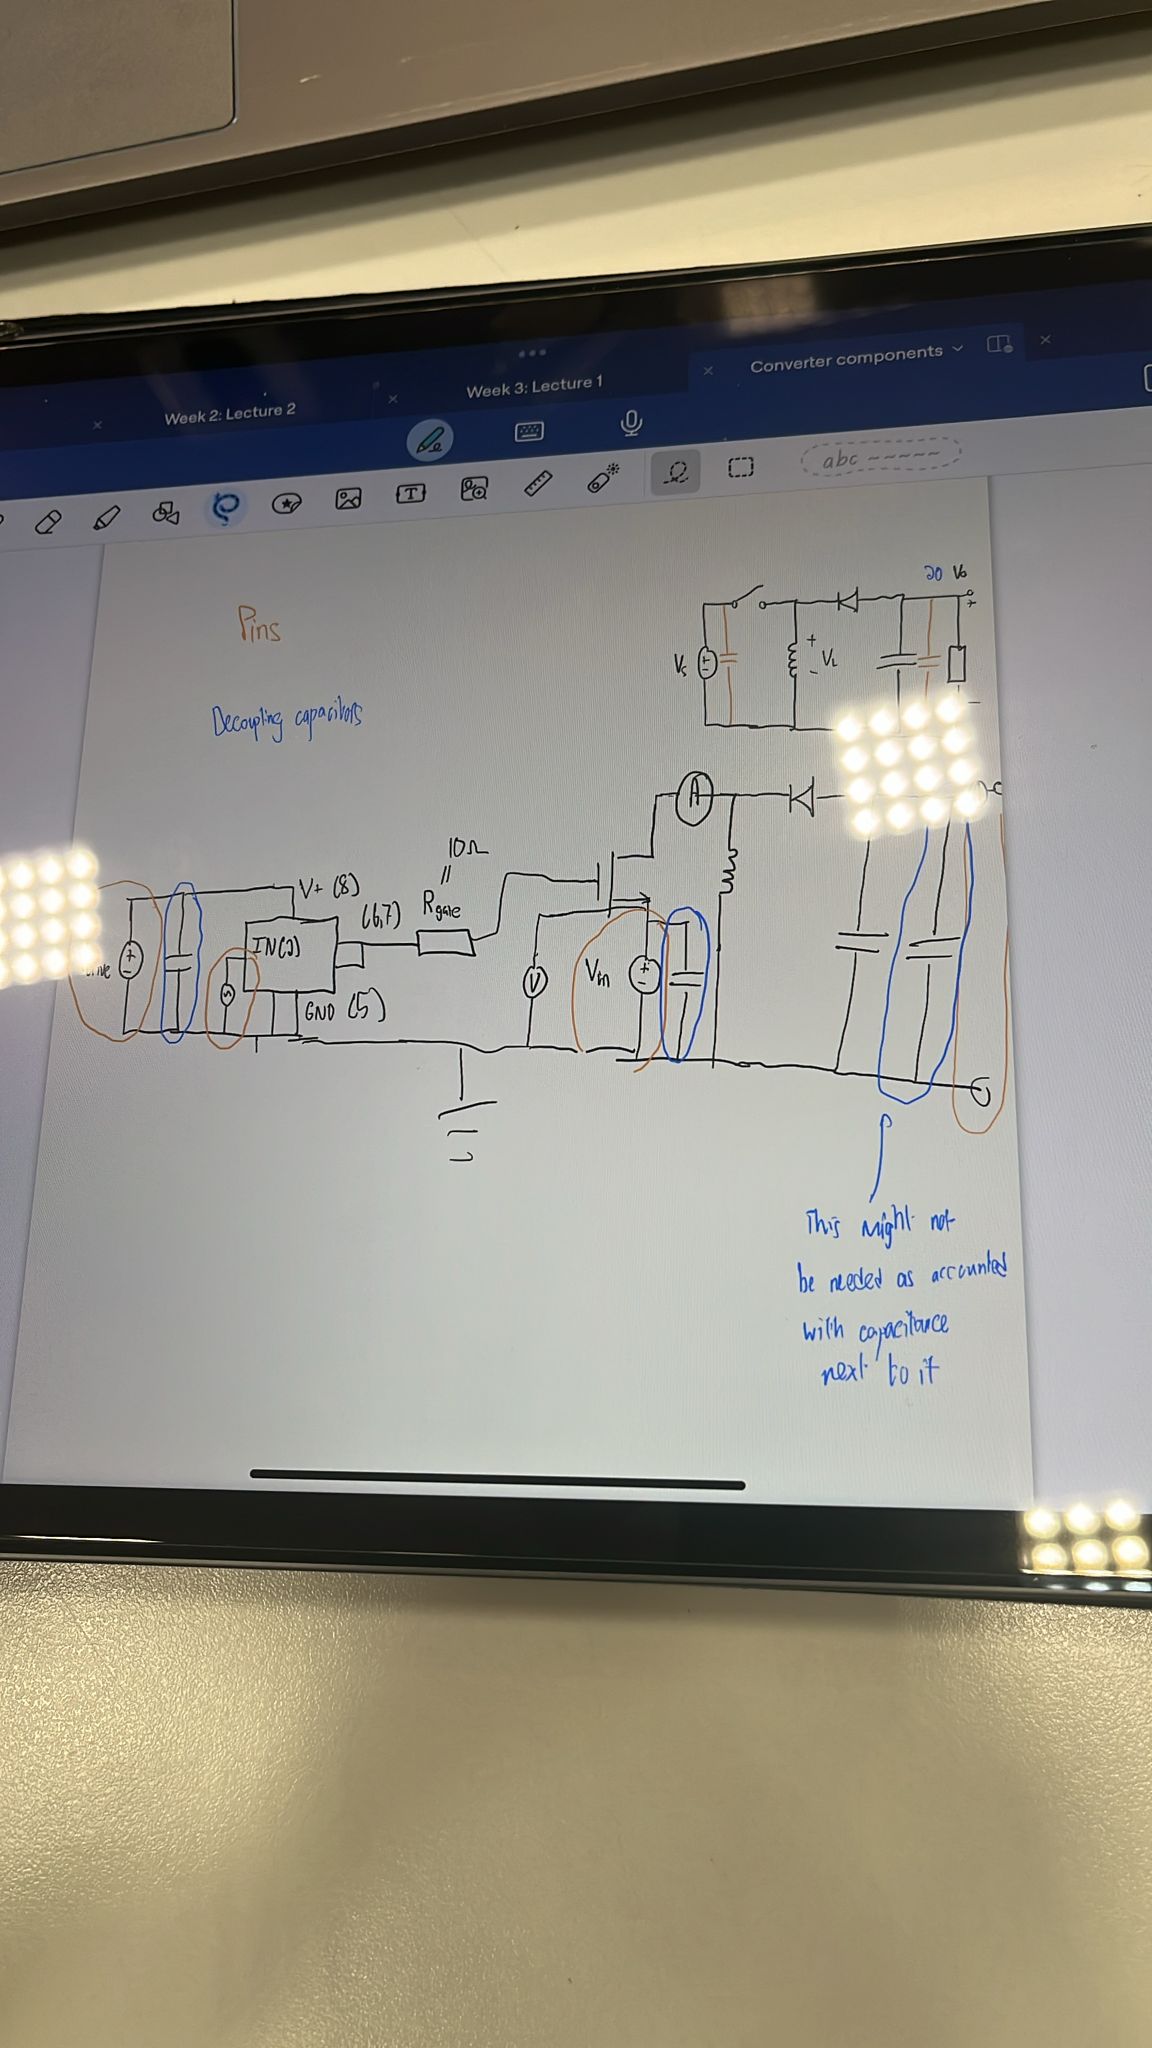 Week 2: Lecture 2
Week 3: Lecture 1
Converter components
abc
T
Pins
Decoupling capacitors
20 Vo
+
Vs
+
-
+
VL
-
-
A
10Ω
=
Rgate
V+ (8)
(6,7)
IN(2)
GND (5)
+
-
S
V
Vin
+
-
This might not
be needed as accounted
with capacitance
next to it